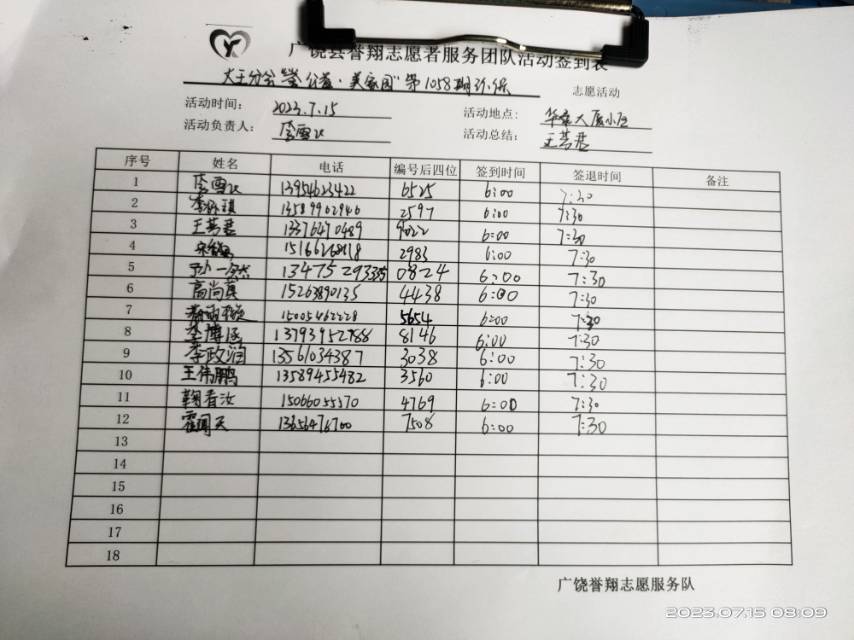 广饶县誉翔志愿者服务团队活动签到表
大王分会"誉公益·美家园"第1058期环保 志愿活动
活动时间: 2023.7.15 活动地点: 华泰大厦小区
活动负责人: 活动总结: 王芳君
序号 姓名 电话 编号后四位 签到时间 签退时间 备注
1 13954623422 6525 6:00 7:30
2 13589962946 2597 6:00 7:30
3 王芳君 13376470489 9022 6:00 7:30
4 2983 6:00 7:30
5 孙一然 13475293335 0824 6:00 7:30
6 高尚真 15263890135 4438 6:00 7:30
7 15005462228 5654 6:00 7:30
8 李博涵 13793952988 8146 6:00 7:30
9 李政润 13561034387 3038 6:00 7:30
10 王伟鹏 13589455482 3560 6:00 7:30
11 鞠香汝 15066055370 4769 6:00 7:30
12 霍闻天 13656476700 7508 6:00 7:30
13
14
15
16
17
18
广饶誉翔志愿服务队
2023.07.15 08:09